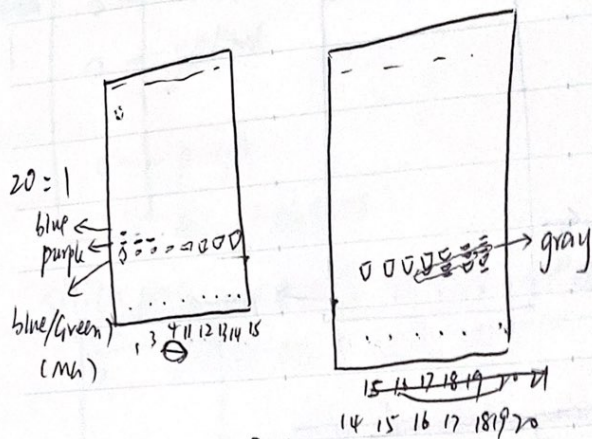 20 = 1
blue
purple
blue/Green
1 3 4 11 12 13 14 15
gray
15 16 17 18 19 20 21
14 15 16 17 18 19 20